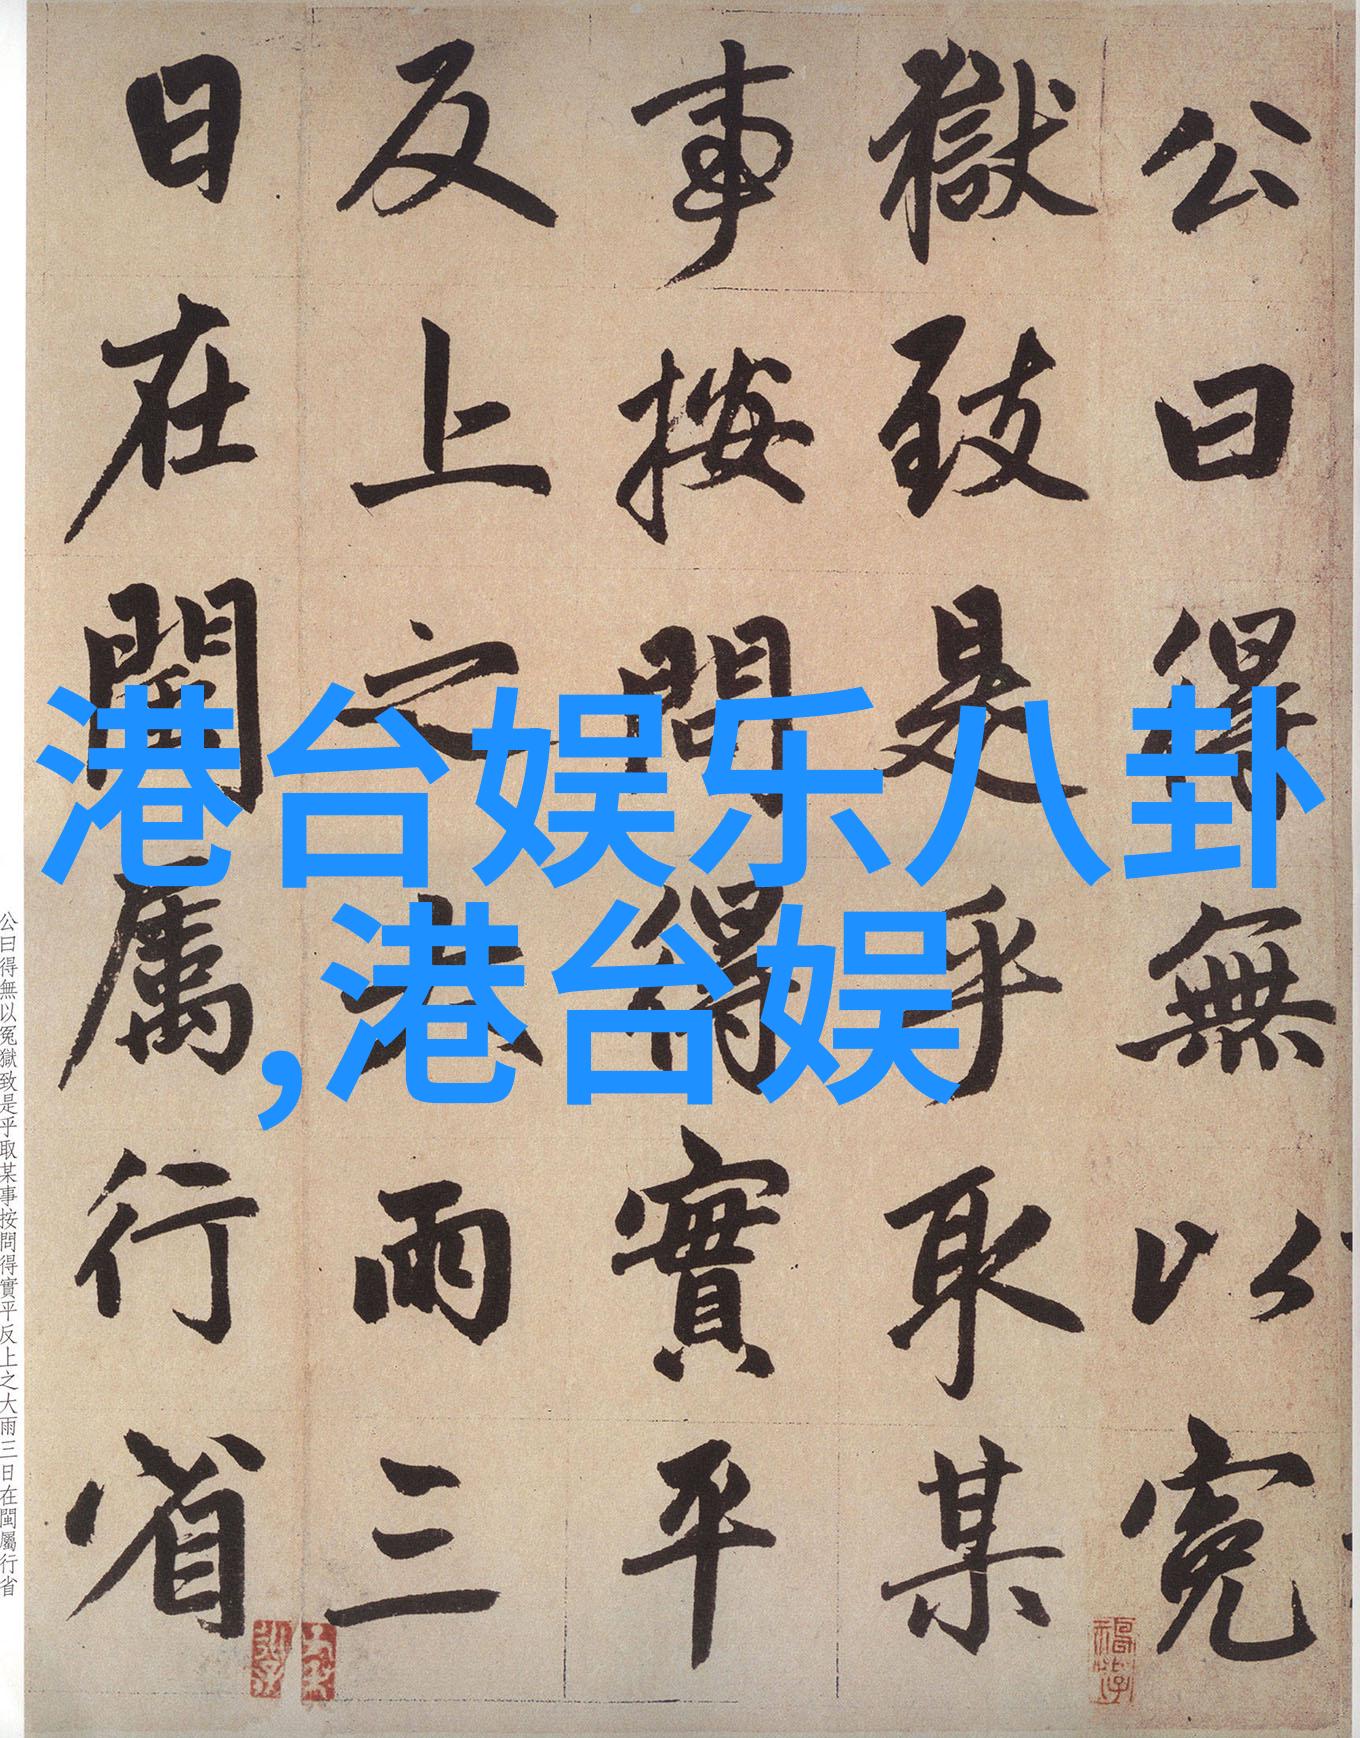 公曰得無以冤
獄致是乎取某
事按問得實平
反上之大雨三
日在閩屬行省
港台娱乐八卦
,港台娱
公曰得無以冤獄致是乎取某事按問得實平反上之大雨三日在閩屬行省